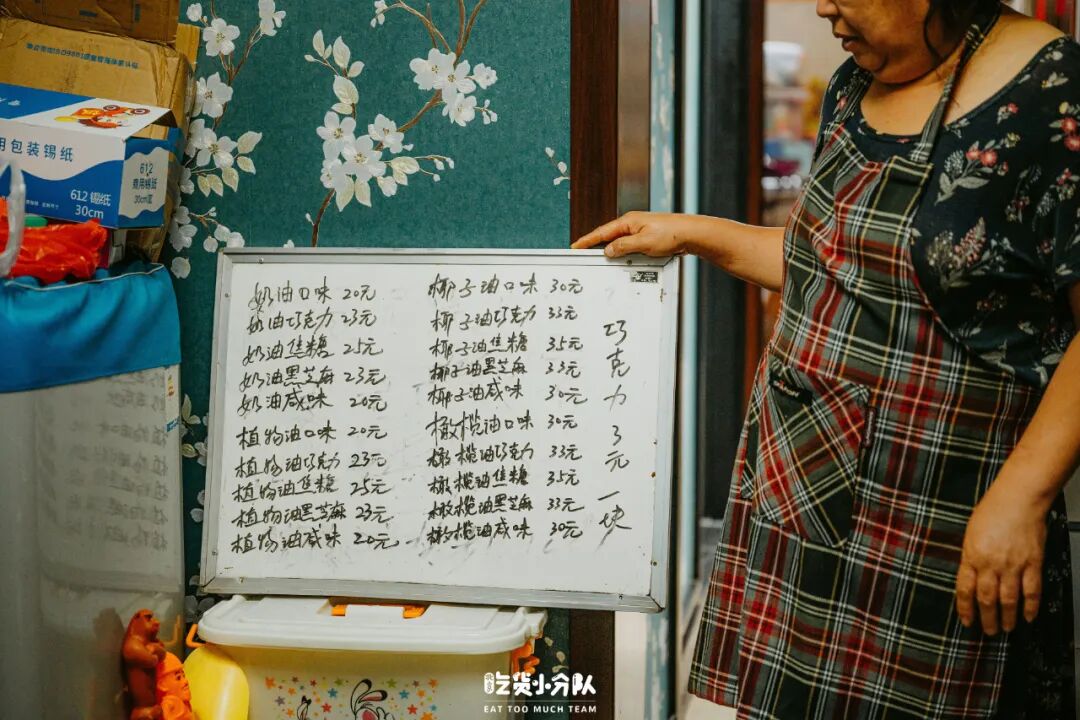 用包装锡纸
612
商用锡纸
30cm宽
612 锡纸
30cm
奶油口味 20元
奶油巧克力 23元
奶油焦糖 25元
奶油黑芝麻 23元
奶油咸味 20元
植物油口味 20元
植物油巧克力 23元
植物油焦糖 25元
植物油黑芝麻 23元
植物油咸味 20元
椰子油口味 30元
椰子油巧克力 33元
椰子油焦糖 35元
椰子油黑芝麻 33元
椰子油咸味 30元
橄榄油口味 30元
橄榄油巧克力 33元
橄榄油焦糖 35元
橄榄油黑芝麻 33元
橄榄油咸味 30元
巧克力3元一块
吃货小分队
EAT TOO MUCH TEAM